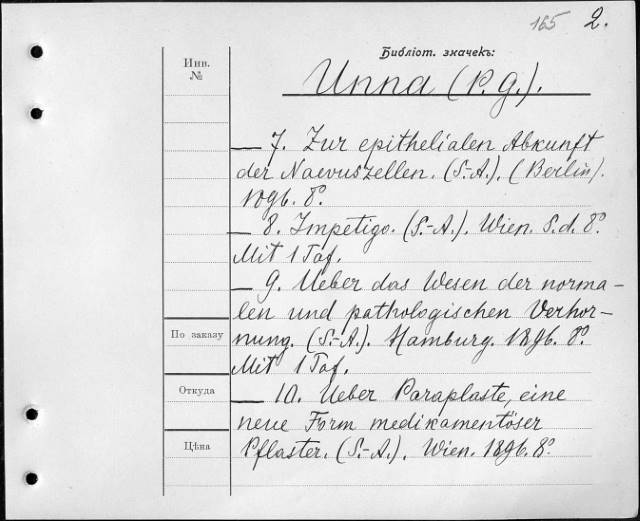 165 2.
Библіот. значекъ:
Инв.
№
Unna (P. g.).
— 7. Zur epithelialen Abkunft
der Naevuszellen. (S.-A.). (Berlin).
1896. 8°.
— 8. Impetigo. (S.-A.). Wien. S.d. 8°.
Mit 1 Taf.
— 9. Ueber das Wesen der norma-
len und pathologischen Verhor-
nung. (S.-A.). Hamburg. 1896. 8°.
Mit 1 Taf.
— 10. Ueber Paraplaste, eine
neue Form medikamentöser
Pflaster. (S.-A.). Wien. 1896. 8°.
По заказу
Откуда
Цѣна